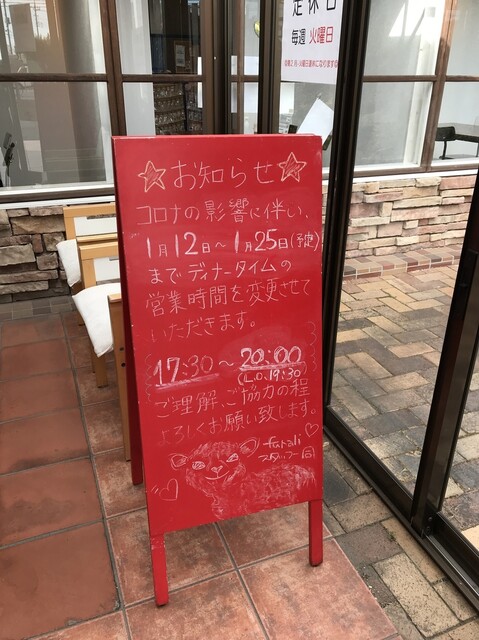 定休日
毎週 火曜日
☆お知らせ☆
コロナの影響に伴い、
1月12日〜1月25日(予定)
までディナータイムの
営業時間を変更させて
いただきます。
17:30〜20:00
(L.O.19:30)
ご理解、ご協力の程
よろしくお願い致します。